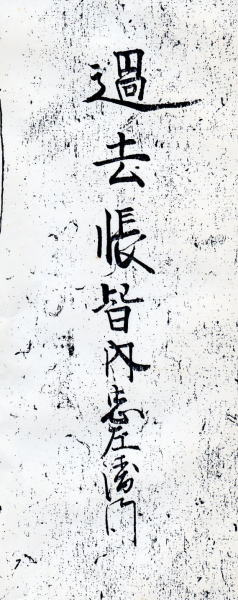 過去帳皆内忠左衛門